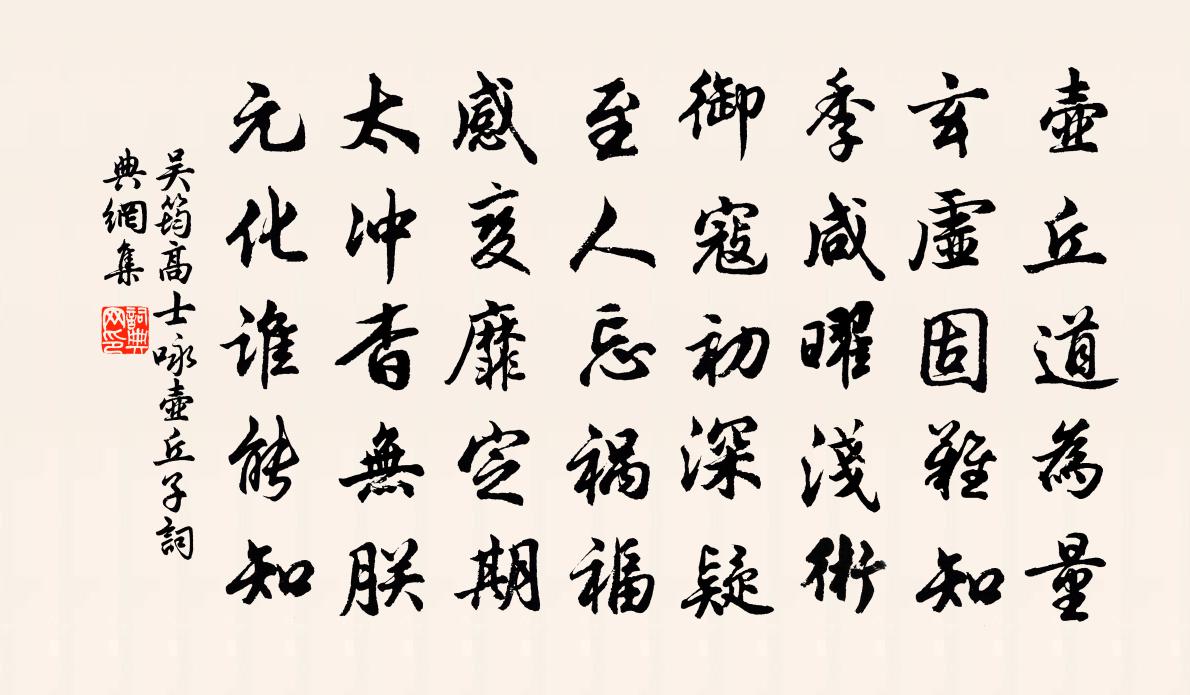 壺丘道為量
玄虛固難知
季咸曜淺術
御寇初深疑
至人忘禍福
感變靡定期
太沖杳無朕
元化誰能知
吳筠高士咏壺丘子詞
典網集
詞典網印